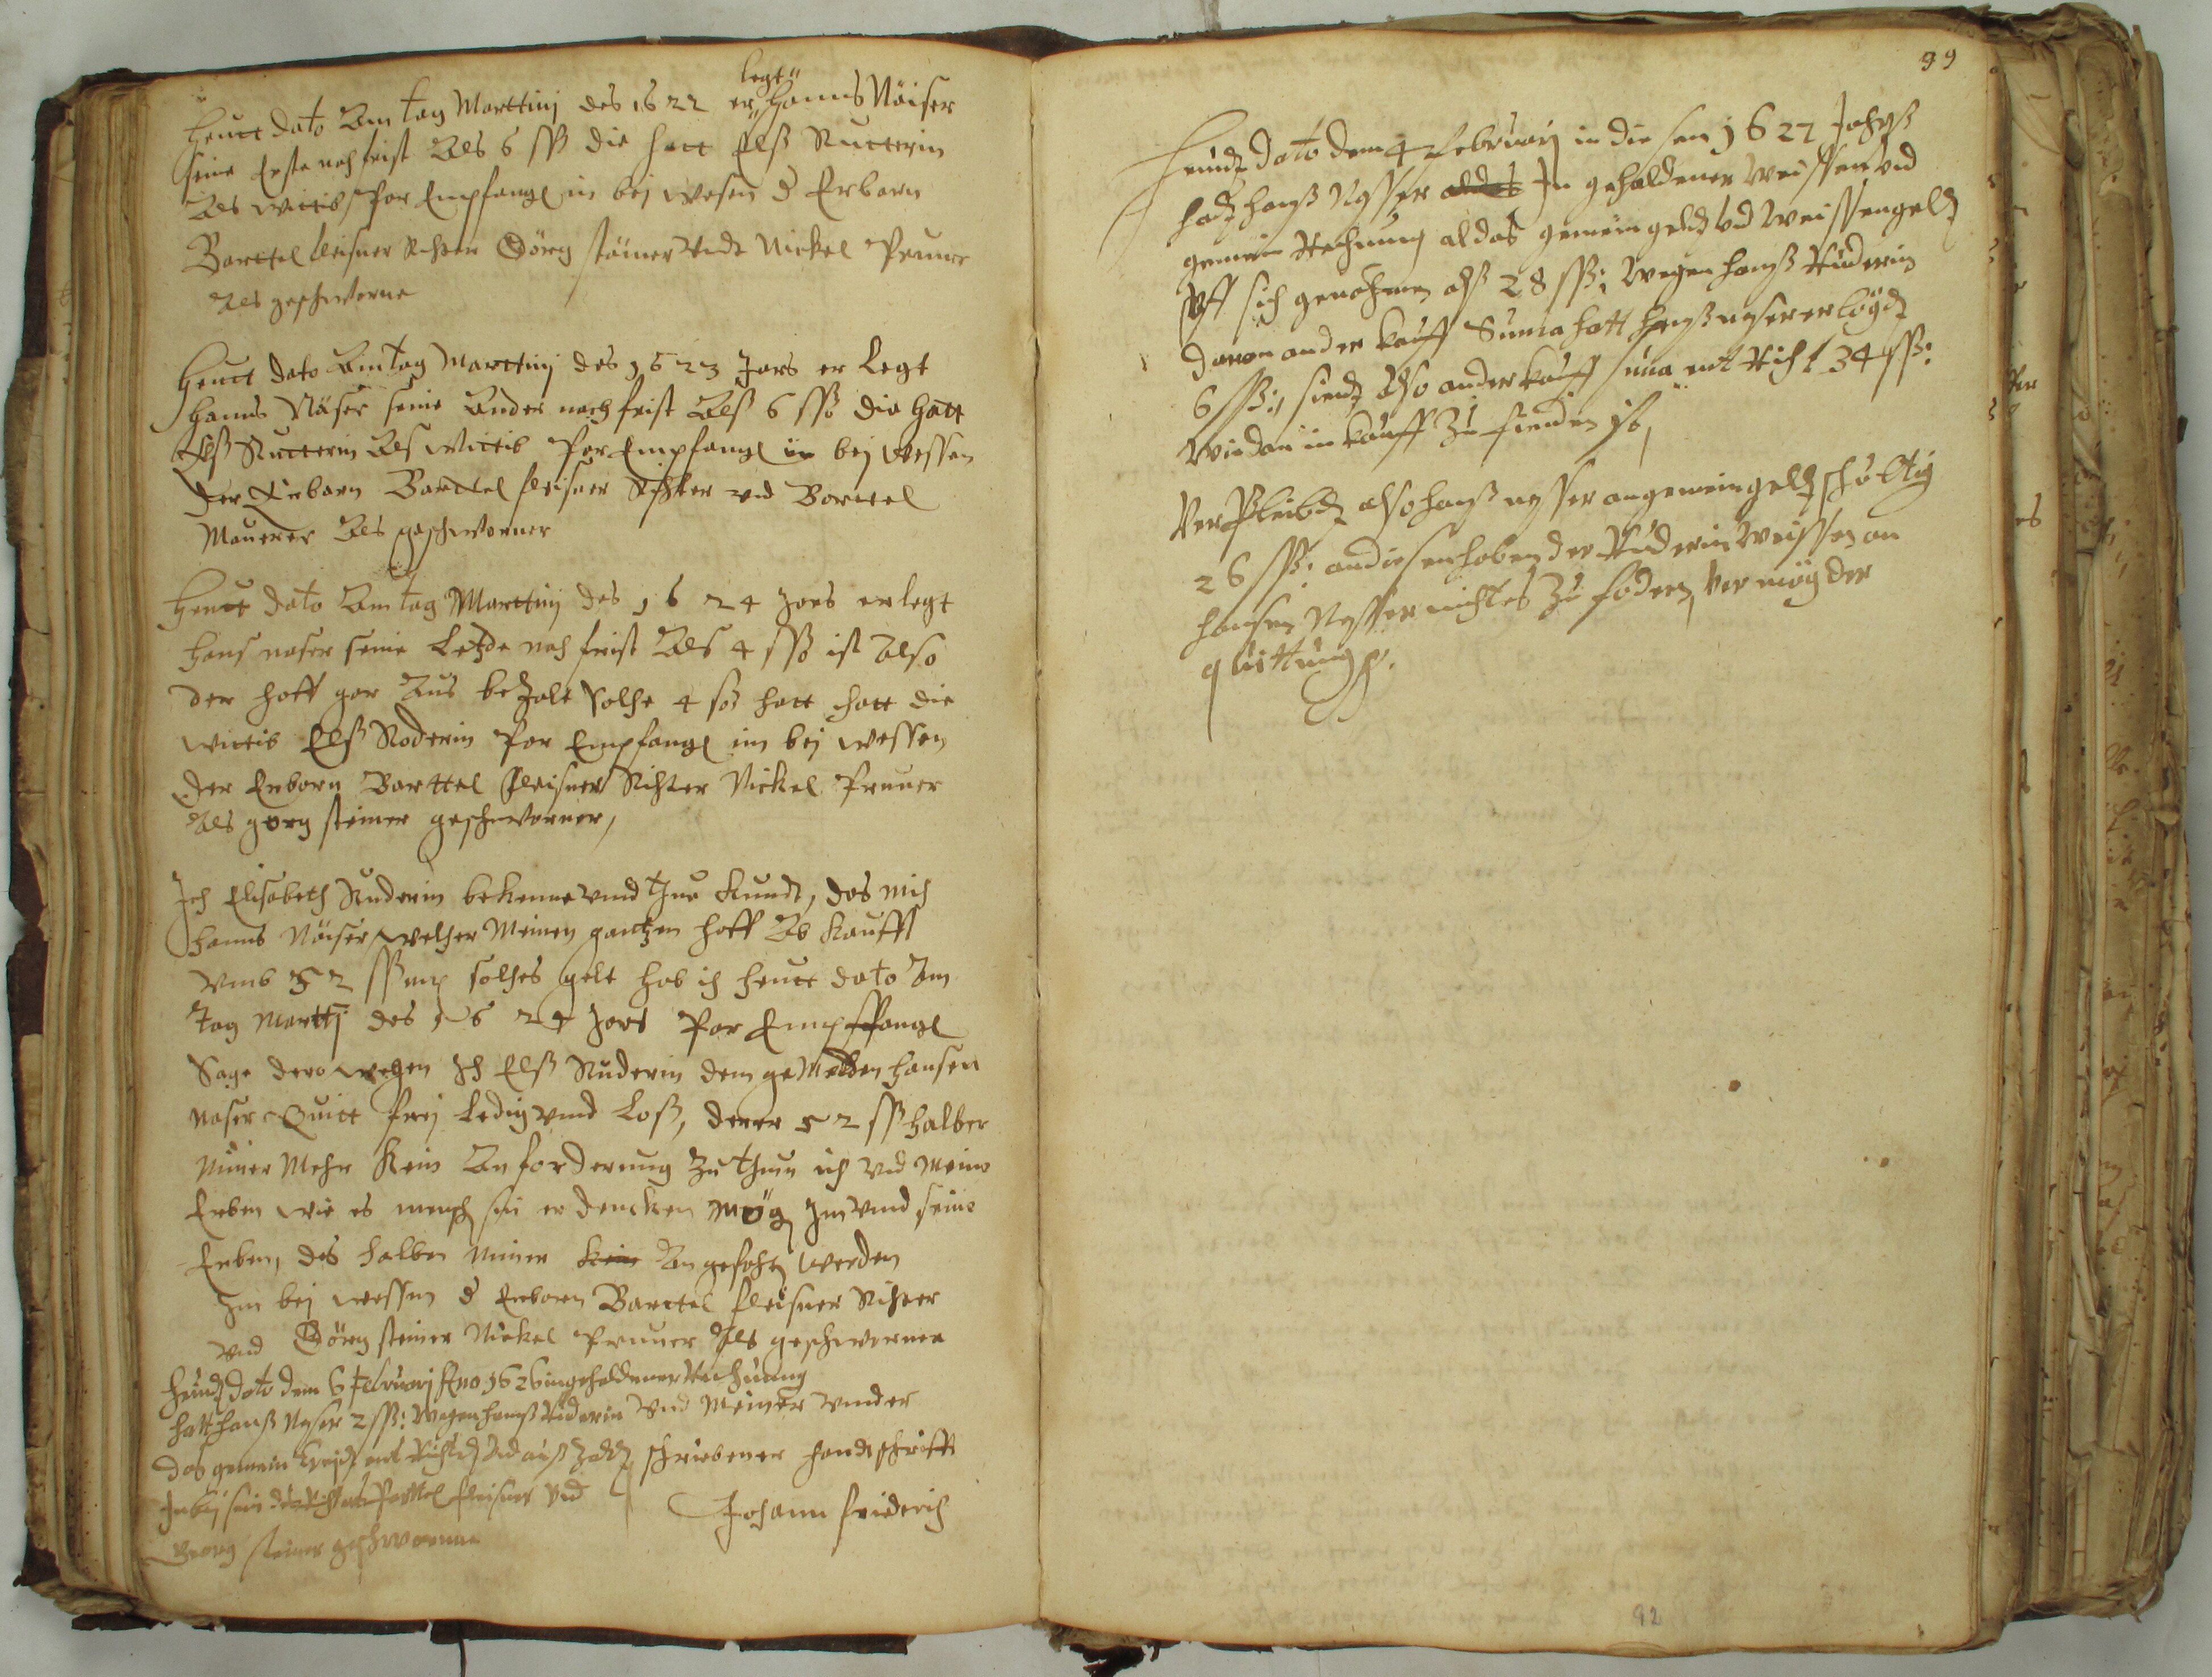 Heutt dato Am tag Marttinj des 1622 er legt Hanns Näiser
seine Erste nach frist Als 6 ßß die hatt Elß Rutterin
Als wittib Par Empfangē in beÿ wesen d Erbarn
Barttel fleisner Richter Görg stainer Vndt Nickel Pruner
Als geschworne
Heutt dato Am tag Marttinj des 1623 Jars er Legt
Hanns Näser seine Ander nach frist Alß 6 ßß die Hatt
Elß Rutterin Als Wittib Par Empfangē in beÿ Wessen
der Erbarn Barttel fleisner Richter vnd Barttel
Maurer Als geschworner
Heutt dato Am tag Marttinj des 1624 Jars erlegt
Hans naser seine Letzde nach frist Als 4 ßß ist Also
der Hoff gar Aus bezalt Solche 4 ßß hatt hatt die
wittib Elß Roderin Par Empfangē im beÿ wessen
der Erborn Barttel fleisner Richter Nickel Pruner
Als gorg steiner geschworner,
Ich Elisabeth Ruderin bekenne vnnd thue Kundt, das mich
Hanns Näiser welcher Meinen gantzen Hoff Ab Kaufft
vmb 52 ßß solches gelt hab ich heutt dato Am
tag Martti des 1624 Jars Par Empffangē
Sage dero wegen Ich Elß Ruderin dem gemelten Hansen
naser Quitt freÿ Ledig vnnd Loß, derer 52 ßß halber
nimer Mehr Kein Anforderung zu thun ich vnd Meine
Erben wie es mensch sin erdencken mög Jm vnnd seine
Erben, des halben nimer kein Angefocht werden
Jm beÿ wessen d Erborn Barttel fleisner Richter
vnd Görg steiner Nickel Pruner Als geschworner
Heundt dato dem 6 Februarj Ano 1626 in gehaldener Rechnung
hatt Hanß Naser 2 ßß: Wegen Hanß Ruderin Vnd Meiner vnder
das gemein entricht vnd auß zalt schriebener Handtschrifft
Jn beÿ sein des Richter Parttel fleisner vnd
Johann friderich
Georg steiner geschworner
99
Heundt dato dem 4 Februarj in diesen 1627 Jahrß
hadt Hanß Nasser aldas Jn gehaldener Weissen vnd
gemein Rechnung aldas gemein geldt vnd Weissengeldt
Vff sich genohmen alß 28 ßß: Wegen Hanß Ruderin
daran an der kauff Suma hatt Hanß naser erlögdt
6 ßß:, siendt Also an der kauff suma entricht 34 ßß:
Wie dan in kauff zu fienden ist,
Verbleibdt also Hanß nasser an gemein geldt schultig
26 ßß: an diesen haben der Ruderin Weissen an
Hansen Nasser nichtes zu fodern Vermög der
quittung.
92